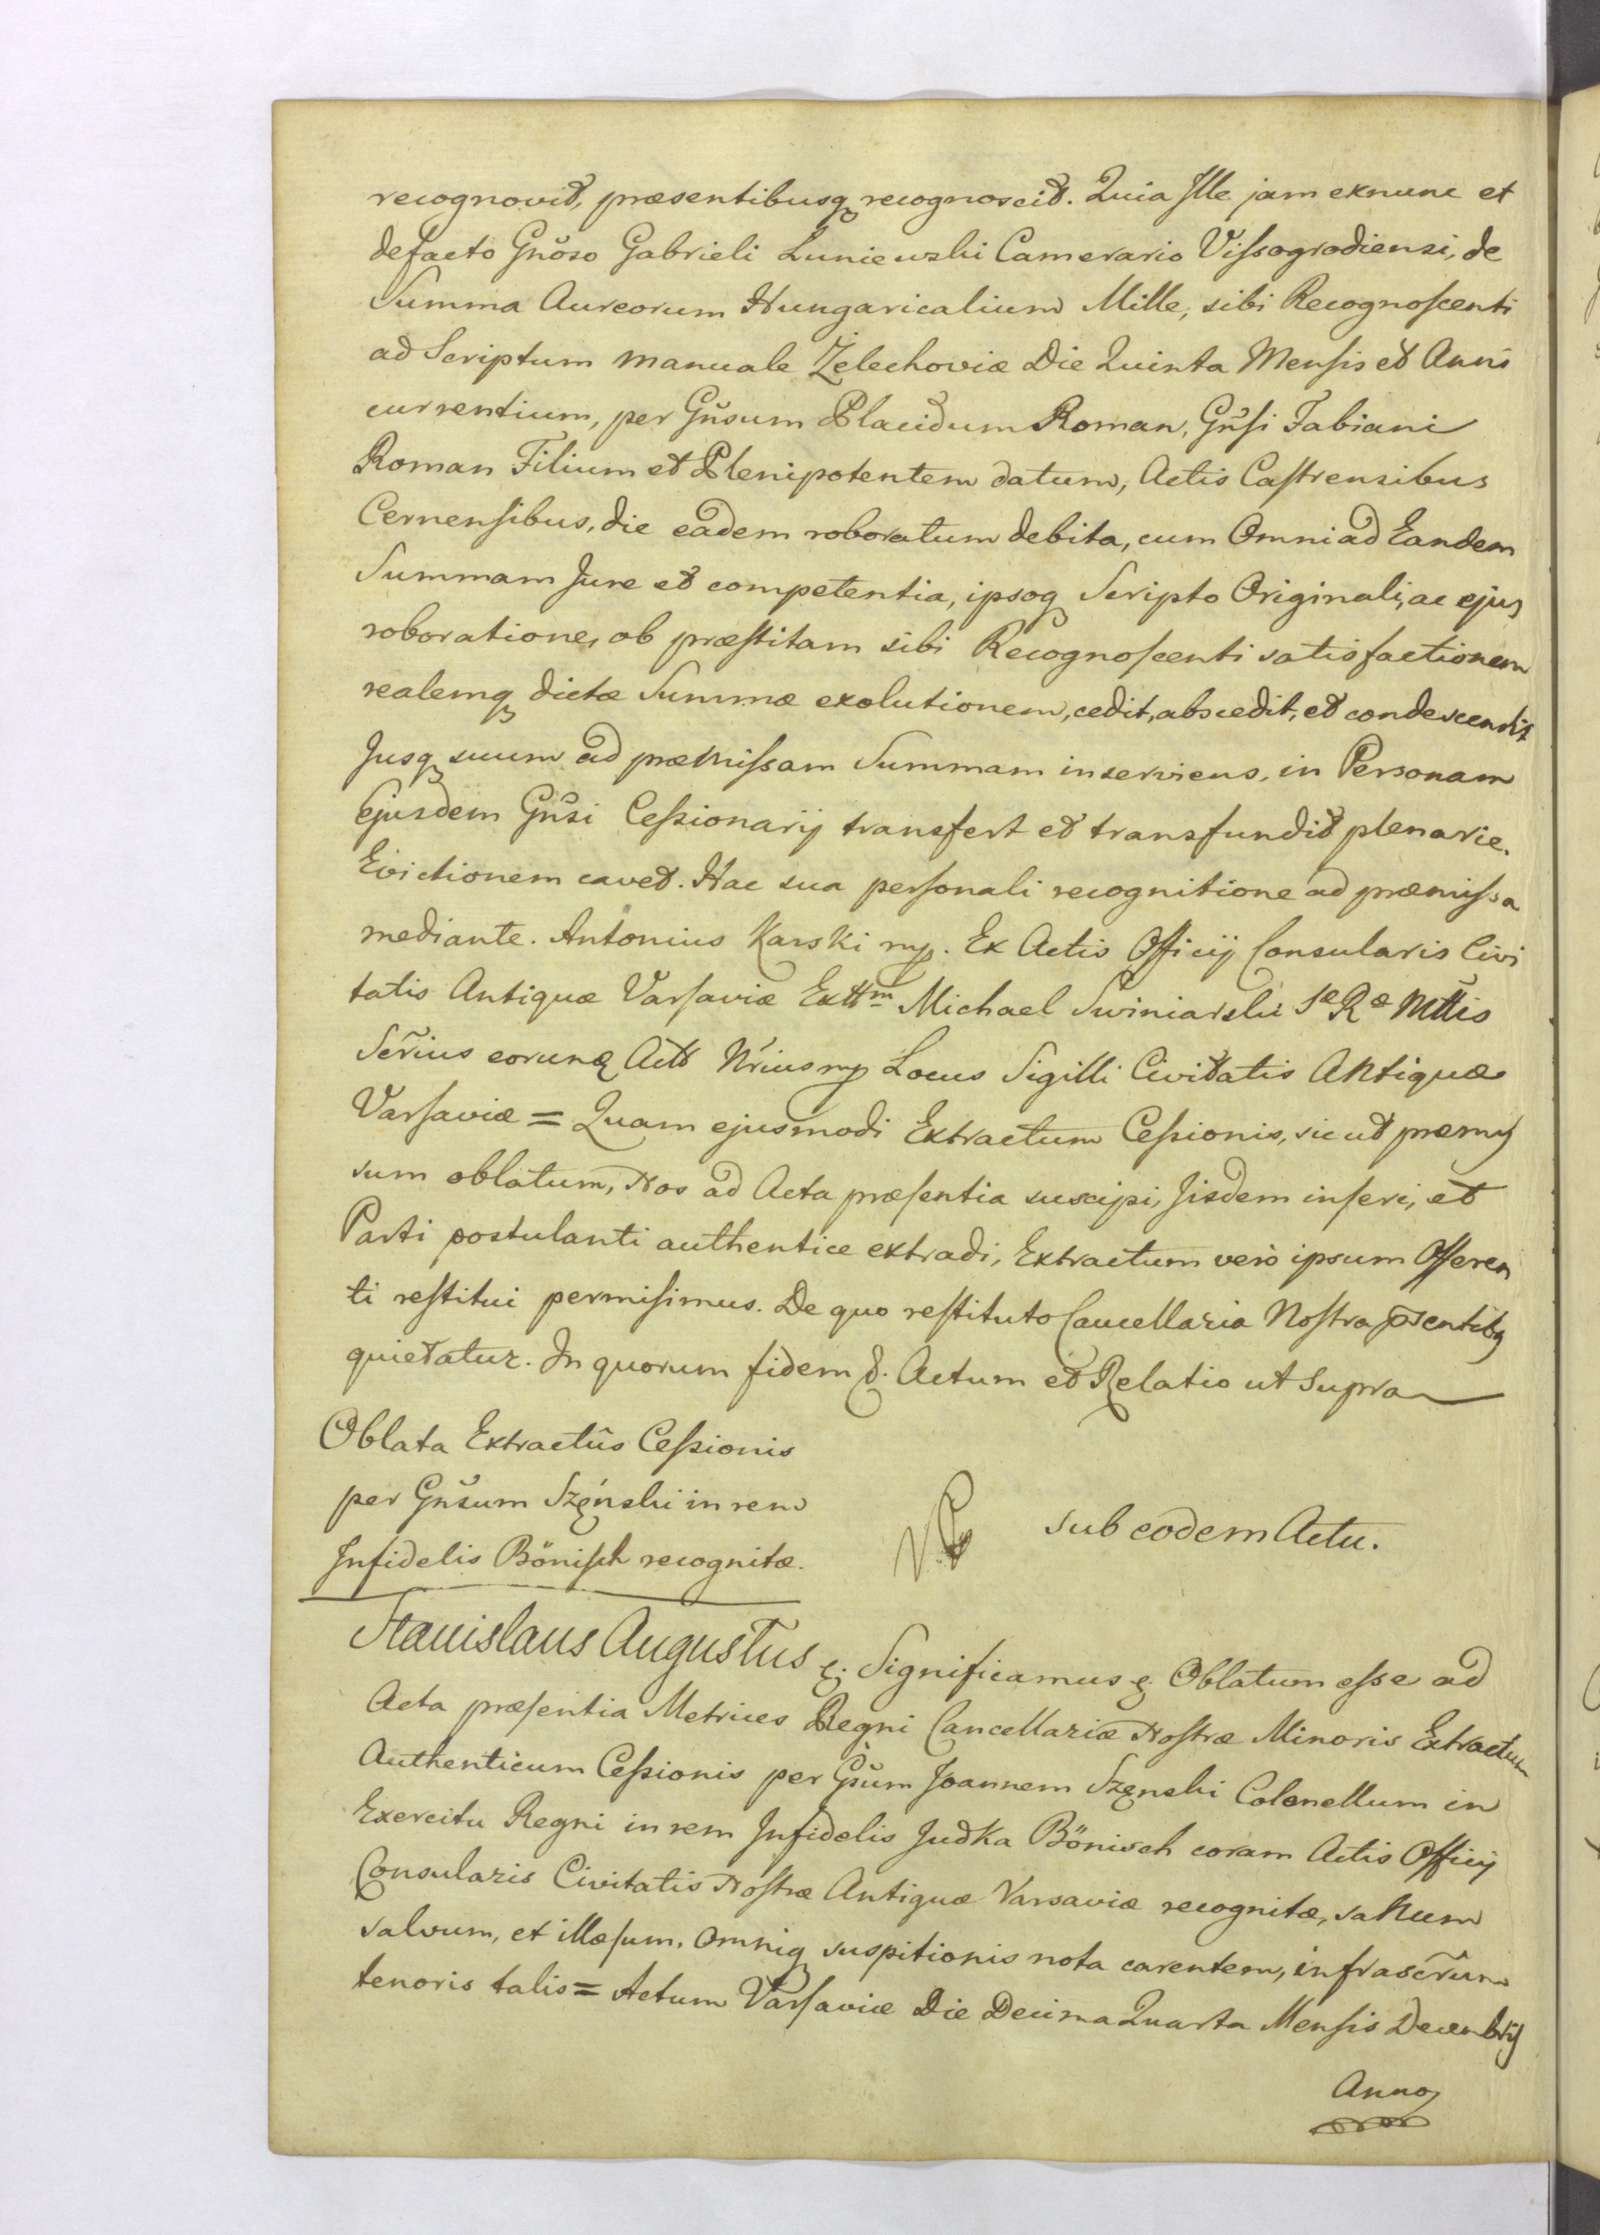 recognovit, præsentibusq recognoscit. Quia Jlle jam exnunc et
defacto Gnõso Gabrieli Luniewski Camerario Vissogrodiensi, de
Summa Aureorum Hungaricalium Mille, sibi Recognoscenti
ad Scriptum manuale Żelechoviæ Die Quinta Mensis et Anni
currentium, per Gñsum Placidum Roman, Gñsi Fabiani
Roman Filium et Plenipotentem datum, Actis Castrensibus
Cernensibus, die eadem roboratum debita, cum Omni ad Eandem
Summam Jure et competentia, ipsoq Scripto Originali, ac ejus
roboratione, ob præstitam sibi Recognoscenti satisfactionem
realemq dictæ Summæ exolutionem, cedit, abscedit, et condescendit
Jusq suum ad præmissam Summam inserviens, in Personam
Ejusdem Gñsi Cessionarij transfert et transfundit plenarie.
Evictionem cavet. Hac sua personali recognitione ad præmissa
mediante. Antonius Karski mp. Ex Actis Officij Consularis Civi
tatis Antiquæ Varsaviæ Extt<sup>m</sup> Michael Swiniarski S<sup>æ</sup> R<sup>æ</sup> Mttis
Sẽrius eorunq Actt Nrius mp Locus Sigilli Civitatis Antiquæ
Varsaviæ = Quam ejusmodi Extractum Cessionis, sic ut præmis
sum oblatum, Nos ad Acta præsentia suscipi, Jisdem inseri, et
Parti postulanti authentice extradi, Extractum verò ipsum Offeren
ti restitui permisimus. De quo restituto Cancellaria Nostra psentibq
quietatur. In quorum fidem &. Actum et Relatio ut Supra
Oblata Extractûs Cessionis
per Gñsum Szęński in rem
Infidelis Bönisch recognitæ.
sub eodem Actu.
Stanislaus Augustus &. Significamus &. Oblatum esse ad
Acta præsentia Metrices Regni Cancellariæ Nostræ Minoris Extractum
Authenticum Cessionis per Gsũm Joannem Szęnski Colonellum in
Exercitu Regni in rem Infidelis Judka Bönisch coram Actis Officij
Consularis Civitatis Nostræ Antiquæ Varsaviæ recognitæ, sanum
salvum, et illæsum, Omniq suspitionis nota carentem, infrascr̃um
tenoris talis = Actum Varsaviæ Die Decima Quarta Mensis Decembris
Anno